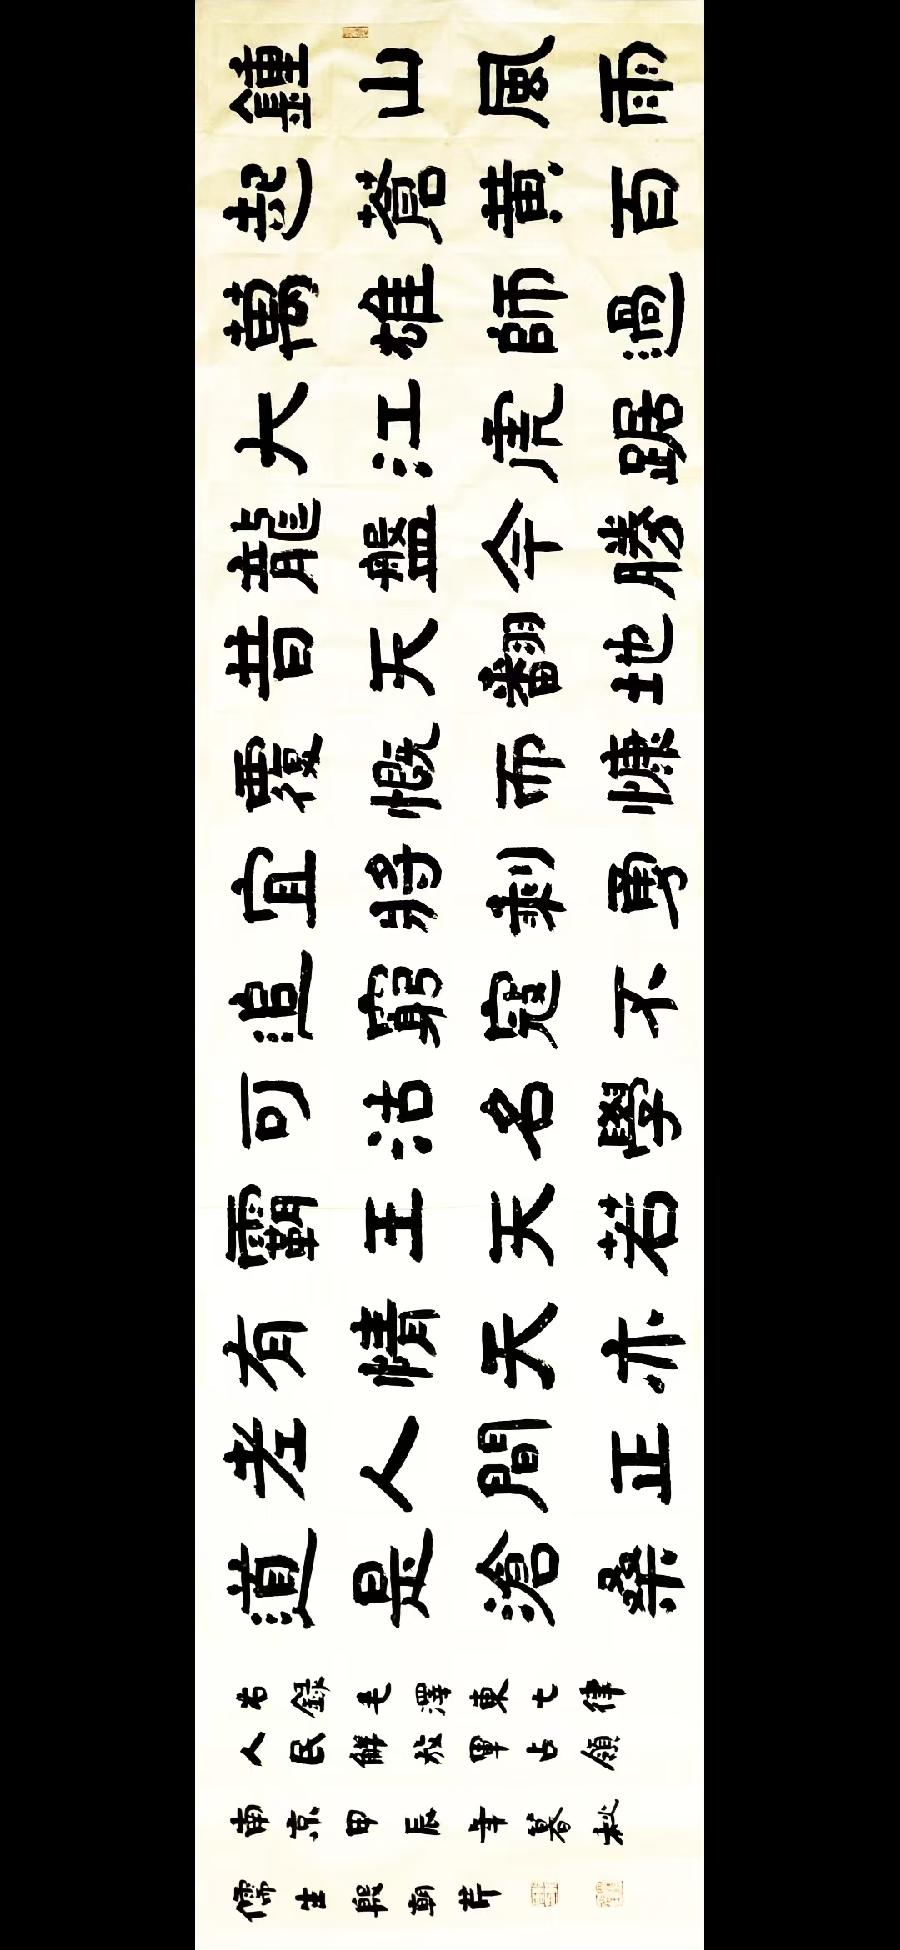 鍾山風雨
起蒼黃百
萬雄師過
大江虎踞
龍盤今勝
昔天翻地
覆慨而慷
宜將剩勇
追窮寇不
可沽名學
霸王天若
有情天亦
老人間正
道是滄桑
右錄毛澤東七律
人民解放軍占領
南京甲辰年暮秋
儒生殷朝芹